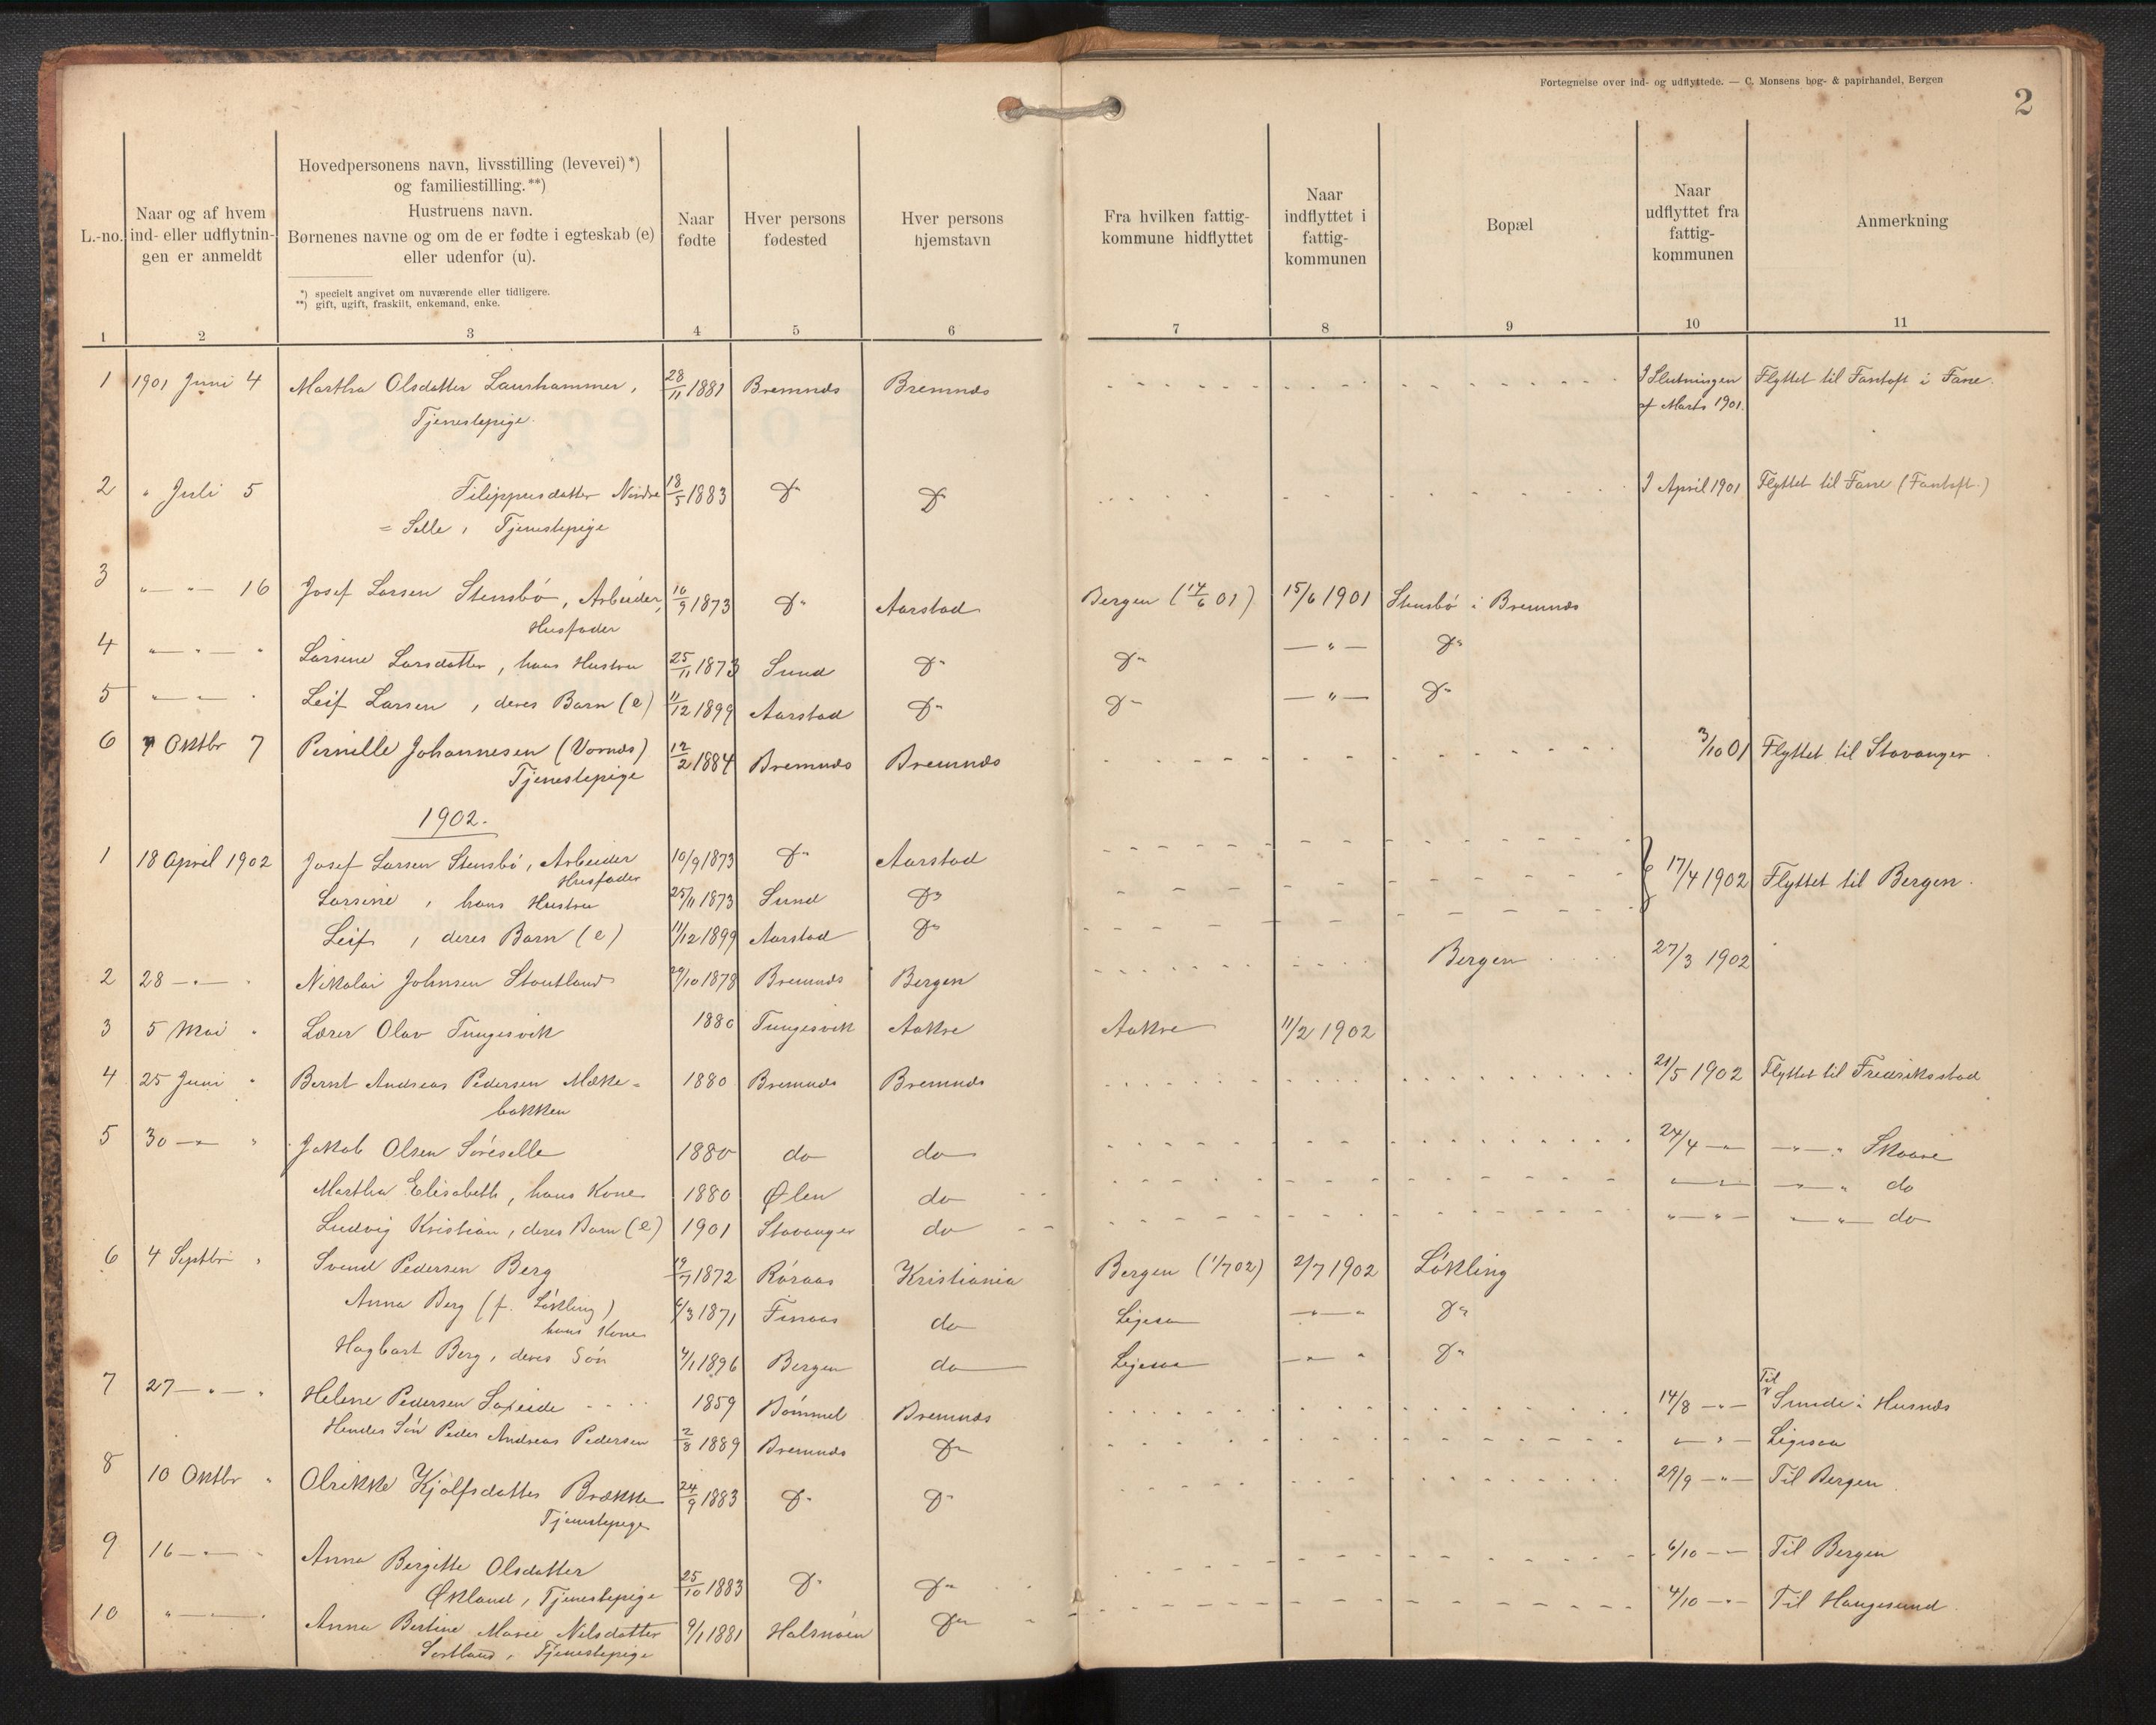 Fortegnelse over ind- og udflyttede. — C. Monsens bog- & papirhandel, Bergen
2
L.-no.
Naar og af hvem ind- eller udflytningen er anmeldt
Hovedpersonens navn, livsstilling (levevei)*)
og familiestilling.**)
Hustruens navn.
Børnenes navne og om de er fødte i egteskab (e)
eller udenfor (u).
*) specielt angivet om nuværende eller tidligere.
**) gift, ugift, fraskilt, enkemand, enke.
Naar fødte
Hver persons fødested
Hver persons hjemstavn
Fra hvilken fattigkommune hidflyttet
Naar indflyttet i fattigkommunen
Bopæl
Naar udflyttet fra fattigkommunen
Anmerkning
1 2 3 4 5 6 7 8 9 10 11
1 1901 Juni 4 Martha Olsdatter Laurhammer, 28/11 1881 Bremnæs Bremnæs I Slutningen Flyttet til Fantoft i Fane.
Tjenestepige. af Marts 1901.
2 " Juli 5 Filippusdatter Nordre 18/5 1883 Do Do I April 1901 Flyttet til Fane (Fantoft.)
= Selle, Tjenestepige
3 " — " — 16 Josef Larsen Stensbö, Arbeider, 10/9 1873 Do Aarstad Bergen (14/6 01) 15/6 1901 Stensbö i Bremnæs
Husfader
4 " — " — " Larsine Larsdatter, hans Hustru 25/11 1873 Sund Do Do — " — Do
5 " — " — " Leif Larsen, deres Barn (e) 11/12 1899 Aarstad Do Do — " — Do
6 " Oktbr 7 Pernille Johannesen (Vornæs) 12/2 1884 Bremnæs Bremnæs 3/10 01 Flyttet til Stavanger
Tjenestepige
1902.
1 18 April 1902 Josef Larsen Stensbö, Arbeider 10/9 1873 Do Aarstad 17/4 1902 Flyttet til Bergen.
Husfader
Larsine, hans Hustru 25/11 1873 Sund Do
Leif, deres Barn (e) 11/12 1899 Aarstad Do
2 28 — " — " Nikolai Johnsen Stoutland 29/10 1878 Bremnæs Bergen Bergen 27/3 1902
3 5 Mai " Lærer Olav Tungesvik 1880 Tungesvik Aakre Aakre 11/2 1902
4 25 Juni " Bernt Andreas Pedersen Mæke- 1880 Bremnæs Bremnæs 21/5 1902 Flyttet til Fredriksstad
bakken
5 30 — " — " Jakob Olsen Söreselle 1880 do do 24/4 — " — " — " Skaare
Martha Elisabeth, hans Kone 1880 Ølen do " — " — " — " do
Ludvig Kristian, deres Barn (e) 1901 Stavanger do " — " — " — " do
6 4 Septbr " Svend Pedersen Berg 19/7 1872 Röraas Kristiania Bergen (1/7 02) 2/7 1902 Lökling
Anna Berg (f. Lökling) 6/3 1871 Finaas do Ligesaa — " — " Do
hans Kone
Hagbart Berg, deres Sön 4/1 1896 Bergen do Ligesaa — " — " Do
7 27 — " — " Helene Pedersen 1859 Bömmel Bremnæs 14/8 — " — Til Sunde i Husnæs
Hendes Sön Peder Andreas Pedersen 2/8 1889 Bremnæs Do " — " — Ligesaa
8 10 Oktbr " Olrikke Kjölfsdatter Brække 24/9 1883 Do Do 29/9 — " — Til Bergen.
Tjenestepige
9 16 — " — " Anna Bergitte Olsdatter 6/10 — " — Til Bergen
Økland, Tjenestepige 25/10 1883 Do Do
10 " — " — " Anna Bertine Marie Nilsdatter 9/1 1881 Halsnöen Do 4/10 — " — Til Haugesund
Sortland, Tjenestepige